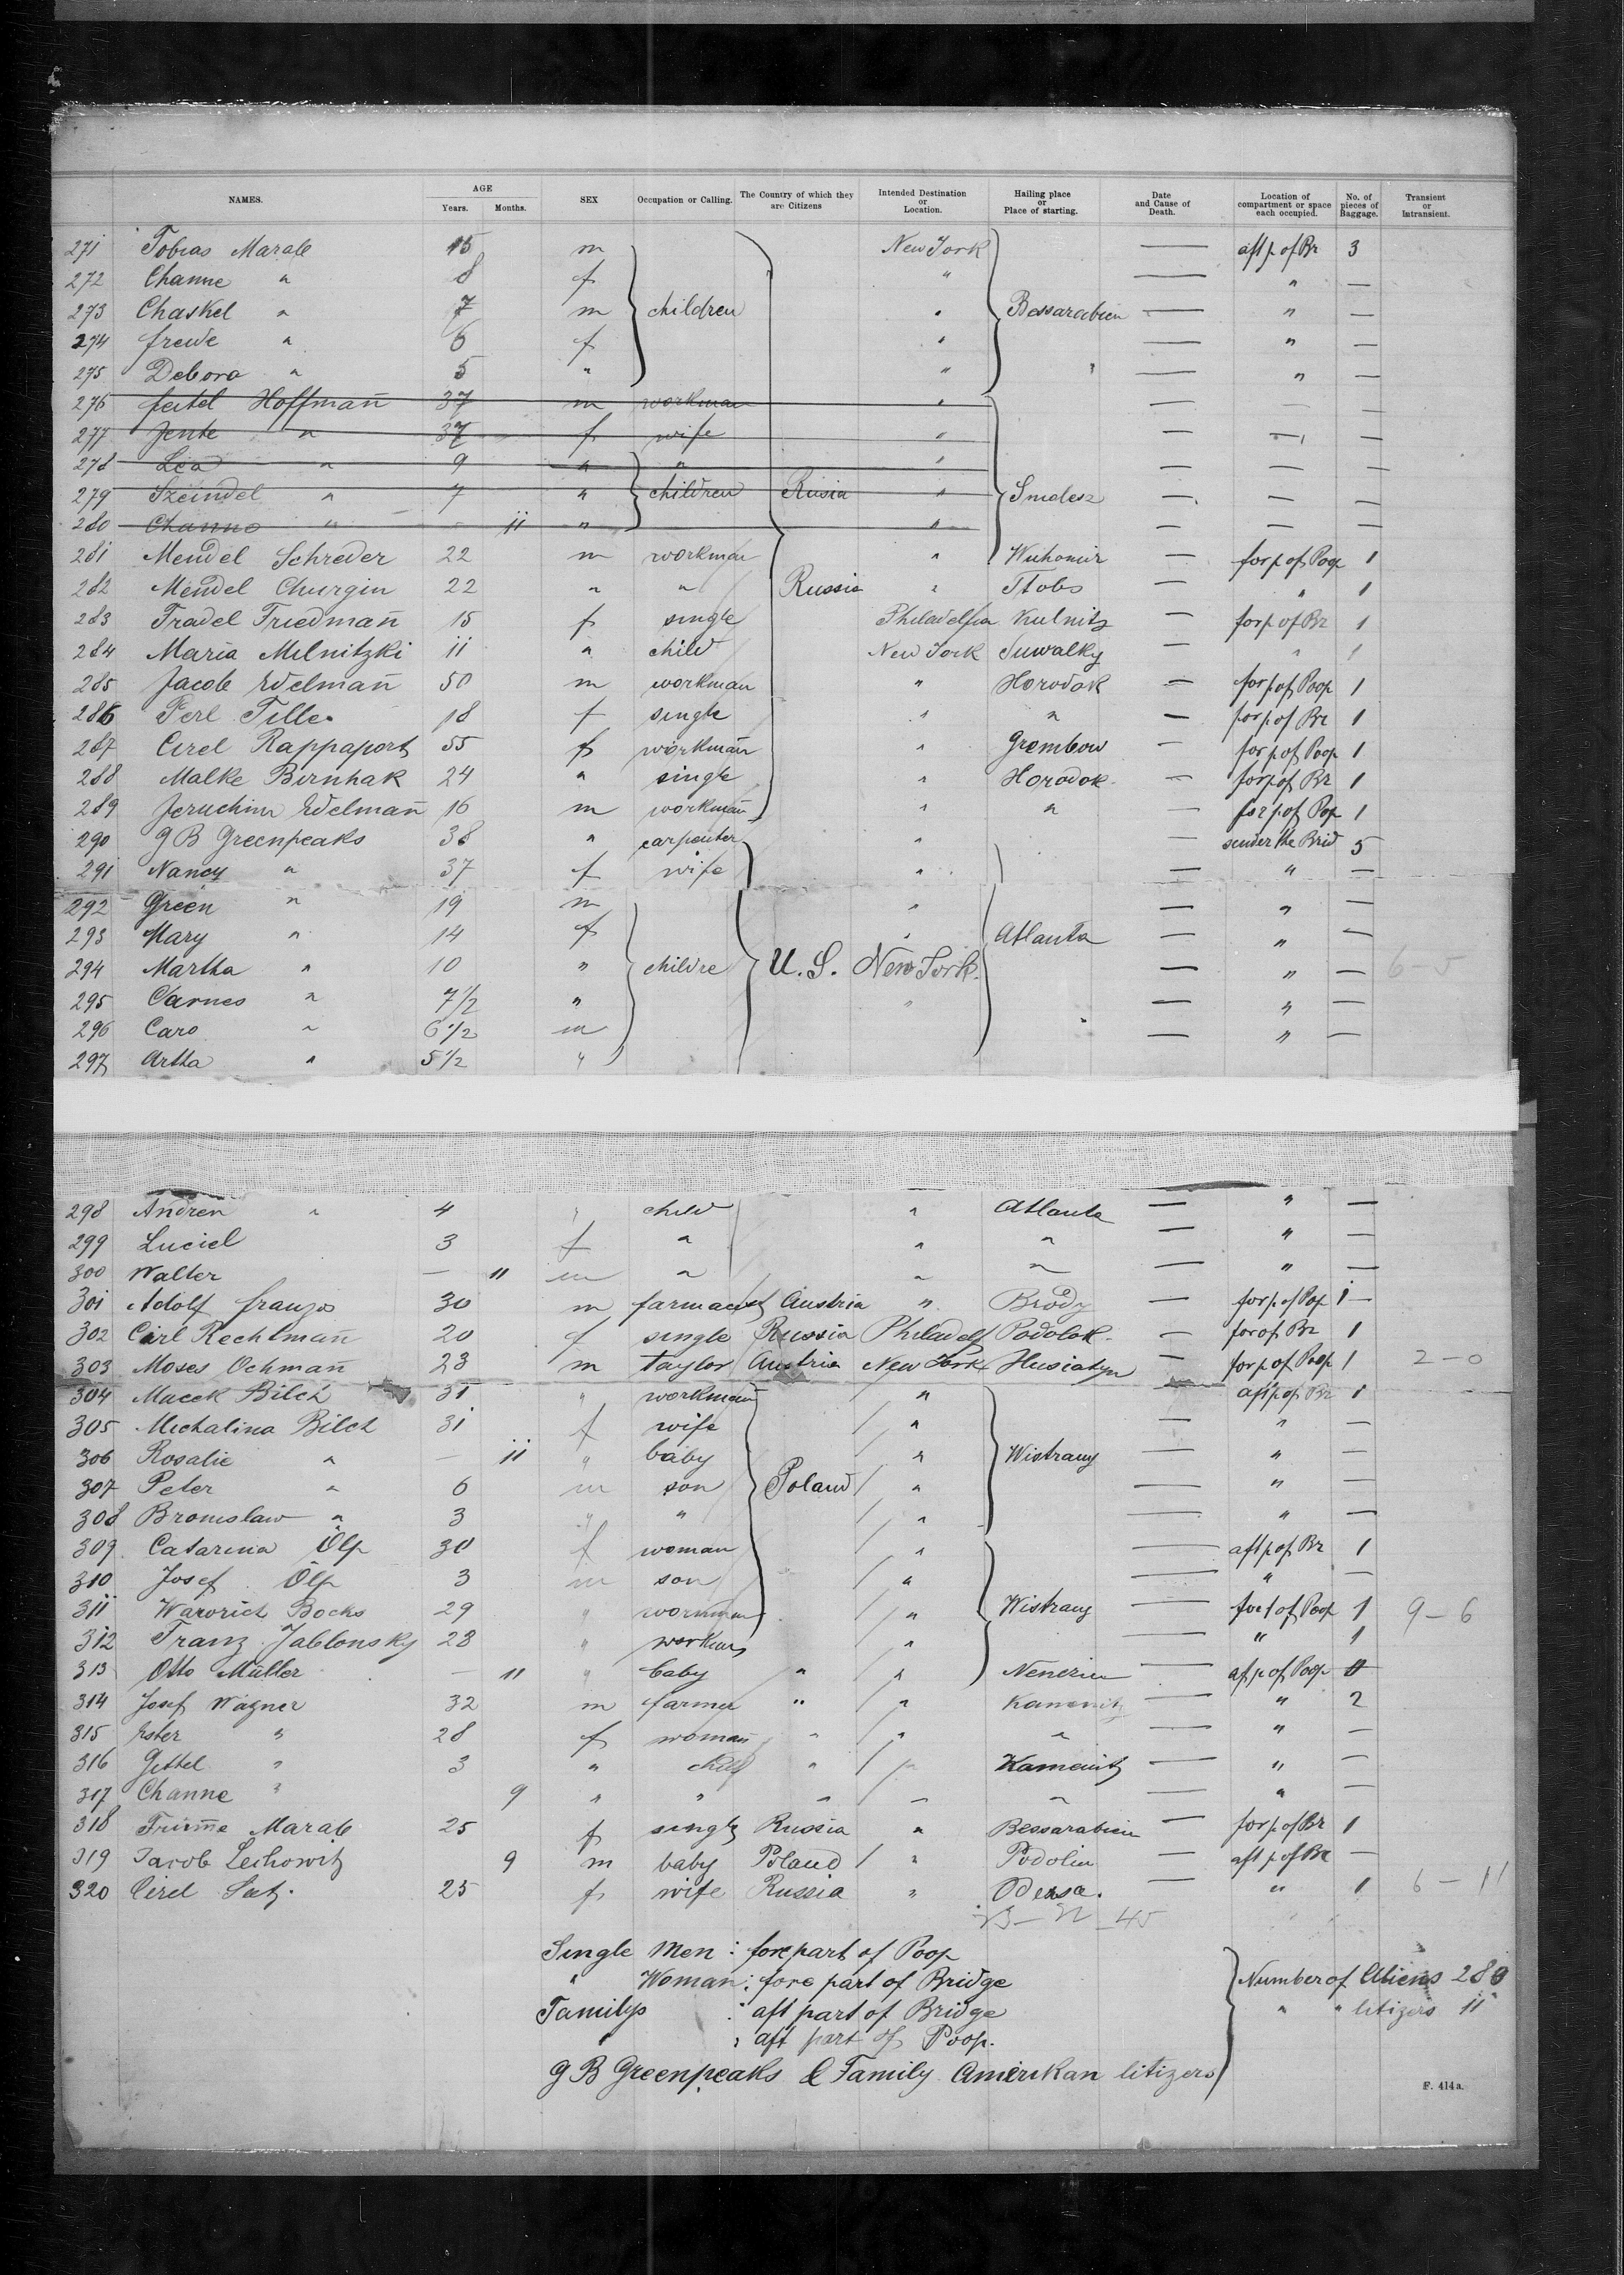 NAMES. AGE Years. Months. SEX Occupation or Calling. The Country of which they are Citizens Intended Destination or Location. Hailing place or Place of starting. Date and Cause of Death. Location of compartment or space each occupied. No. of pieces of Baggage. Transient or Intransient.
271 Tobias Marale 15 m New York — aft p of Br 3
272 Channe " 8 f " — " —
273 Chaskel " 7 m children " Bessarabien — " —
274 frewe " 6 f " — " —
275 Debora " 5 " " " — " —
276 feitel Hoffmañ 37 m workman " — — —
277 Jente " 37 f wife " — — —
278 Lea " 9 " " " — — —
279 Szeindel " 7 " children Rusia " Smolesz — — —
280 Channo " — ii " " — — —
281 Mendel Schreder 22 m workman " — for p of Poop 1
282 Mendel Churgin 22 " " Russia " Stobs — " 1
283 Fradel Friedmañ 15 f single Philadelfia Kulnitz — for p of Br 1
284 Maria Melnitzki ii " child New York Suwalky — " 1
285 Jacob Edelmañ 50 m workman " Horodok — for p of Poop 1
286 Perl Tille 18 f single " " — for p of Br 1
287 Cirel Rappaport 55 f workmañ " Grembow — for p of Poop 1
288 Malke Birnhak 24 " single " Horodok — for p of Br 1
289 Jeruchim Edelmañ 16 m workmañ " " — for p of Pop 1
290 G B Greenpeaks 38 " carpenter " — sender the Brid 5
291 Nancy " 37 f wife " — " —
292 Green " 19 m " — " —
293 Mary " 14 f " Atlanta — " —
294 Martha " 10 " childre U. S. New York — " — 6-5
295 Carnes " 7 1/2 " " — " —
296 Caro " 6 1/2 m — " —
297 Artha " 5 1/2 "
298 Andren " 4 " child " Atlanta — " —
299 Luciel 3 f " " " — " —
300 Walter — 11 m " " " — " —
301 Adolf franzos 30 m Austria " Brody — for p of Pop 1 —
302 Cirl Rechtmañ 20 f single Russia Philadelf Podolok — for of Br 1
303 Moses Ochmañ 23 m taylor Austria New York Husiatyn — for p of Poop 1 2-0
304 Macek Bilch 31 " workmañ " aft p of Br 1
305 Michalina Bilch 31 f wife " — " —
306 Rosalie " — ii " baby " Wistrany — " —
307 Peter " 6 m son Poland " — " —
308 Bronislaw " 3 " " " — " —
309 Catarina Olp 30 f woman " — aft p of Br 1
310 Josef Olp 3 m son " — " —
311 Warorich Bocks 29 " " Wistrany — for p of Poop 1 9-6
312 Franz Jablonsky 28 " " — " 1
313 Otto Müller — 11 " baby " " — af p of Poop
314 Josef Wagner 32 m farmer " " Kamenitz — " 2
315 Ester " 28 f womañ " " " — " —
316 Gittel " 3 " child " " Kamenitz — " —
317 Channe " 9 " " " " " — " —
318 Frume Marale 25 f single Russia " Bessarabien — for p of Br 1
319 Jacob Leihowitz 9 m baby Poland " Podolien — aft p of Br —
320 Cirel Satz. 25 f wife Russia " Odessa. — " 1 6-11
Single Men : fore part of Poop
" Woman : fore part of Bridge
Familys : aft part of Bridge
" aft part of Poop.
G B Greenpeaks & Family Amerikan litizers
Number of Aliens 280
" " litizers 11
F. 414a.